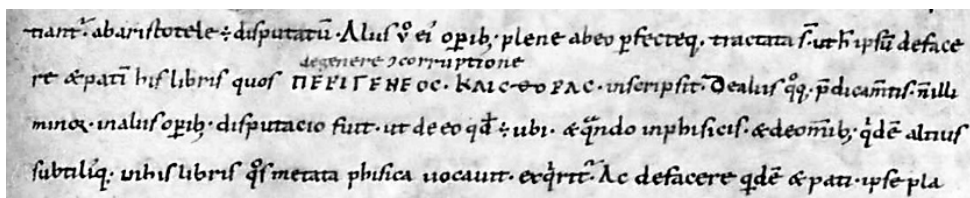 nant᷑. abaristotele ÷ disputatū. Alus ṽ ei᷒ oꝑib; plene abeo ꝑfecteq; tractata s̄. ut h̄ ipsū deface
degenere ⁊corruptione
re & pati his libris quos ΠΕΡΙΓΕΝΕΟС. ΚΑΙС ΘΟΡΑС. inscripsit. Dealus qͦq; p̄dicam̄tis. n̄ illi
minoꝝ. inalus oꝑib; disputacio fuit. ut de eo qđ ÷ ubi. & qͣndo inphisicis. & deom̄ib; qͥdē altius
subtiliꝰq;. in his libris qͦs metata phisica uocauit. exqͥrit᷑. Ac defacere qͥdē & pati. ipse pla